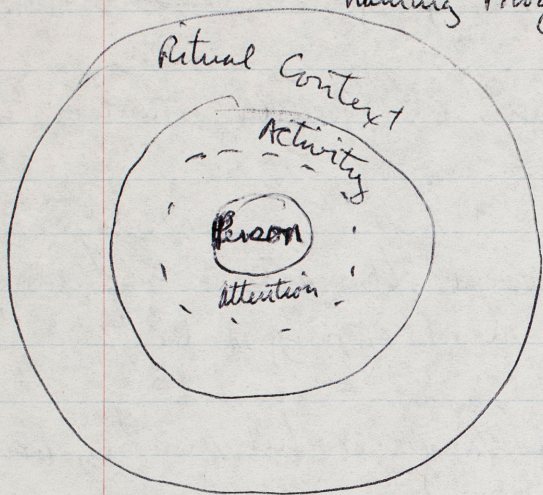 Ritual Context
Activity
Person
attention